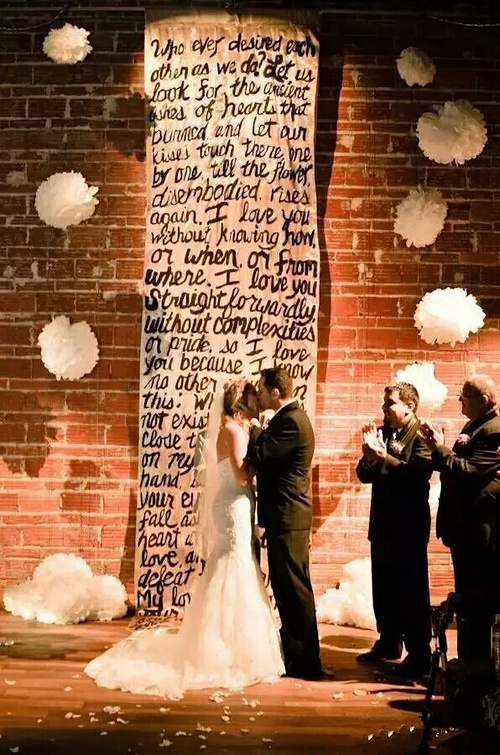 Who ever desired each
other as we do? Let us
look for the ancient
ashes of heart that
burned and let our
kisses touch there, one
by one, till the flower,
disembodied, rises
again. I love you
without knowing how,
or when, or from
where. I love you
straightforwardly
without complexities
or pride, so I love
you because I know
no other
this: w
not exis
close t
on my
hand
your ey
fall as
heart a
love, an
defeat
My lo